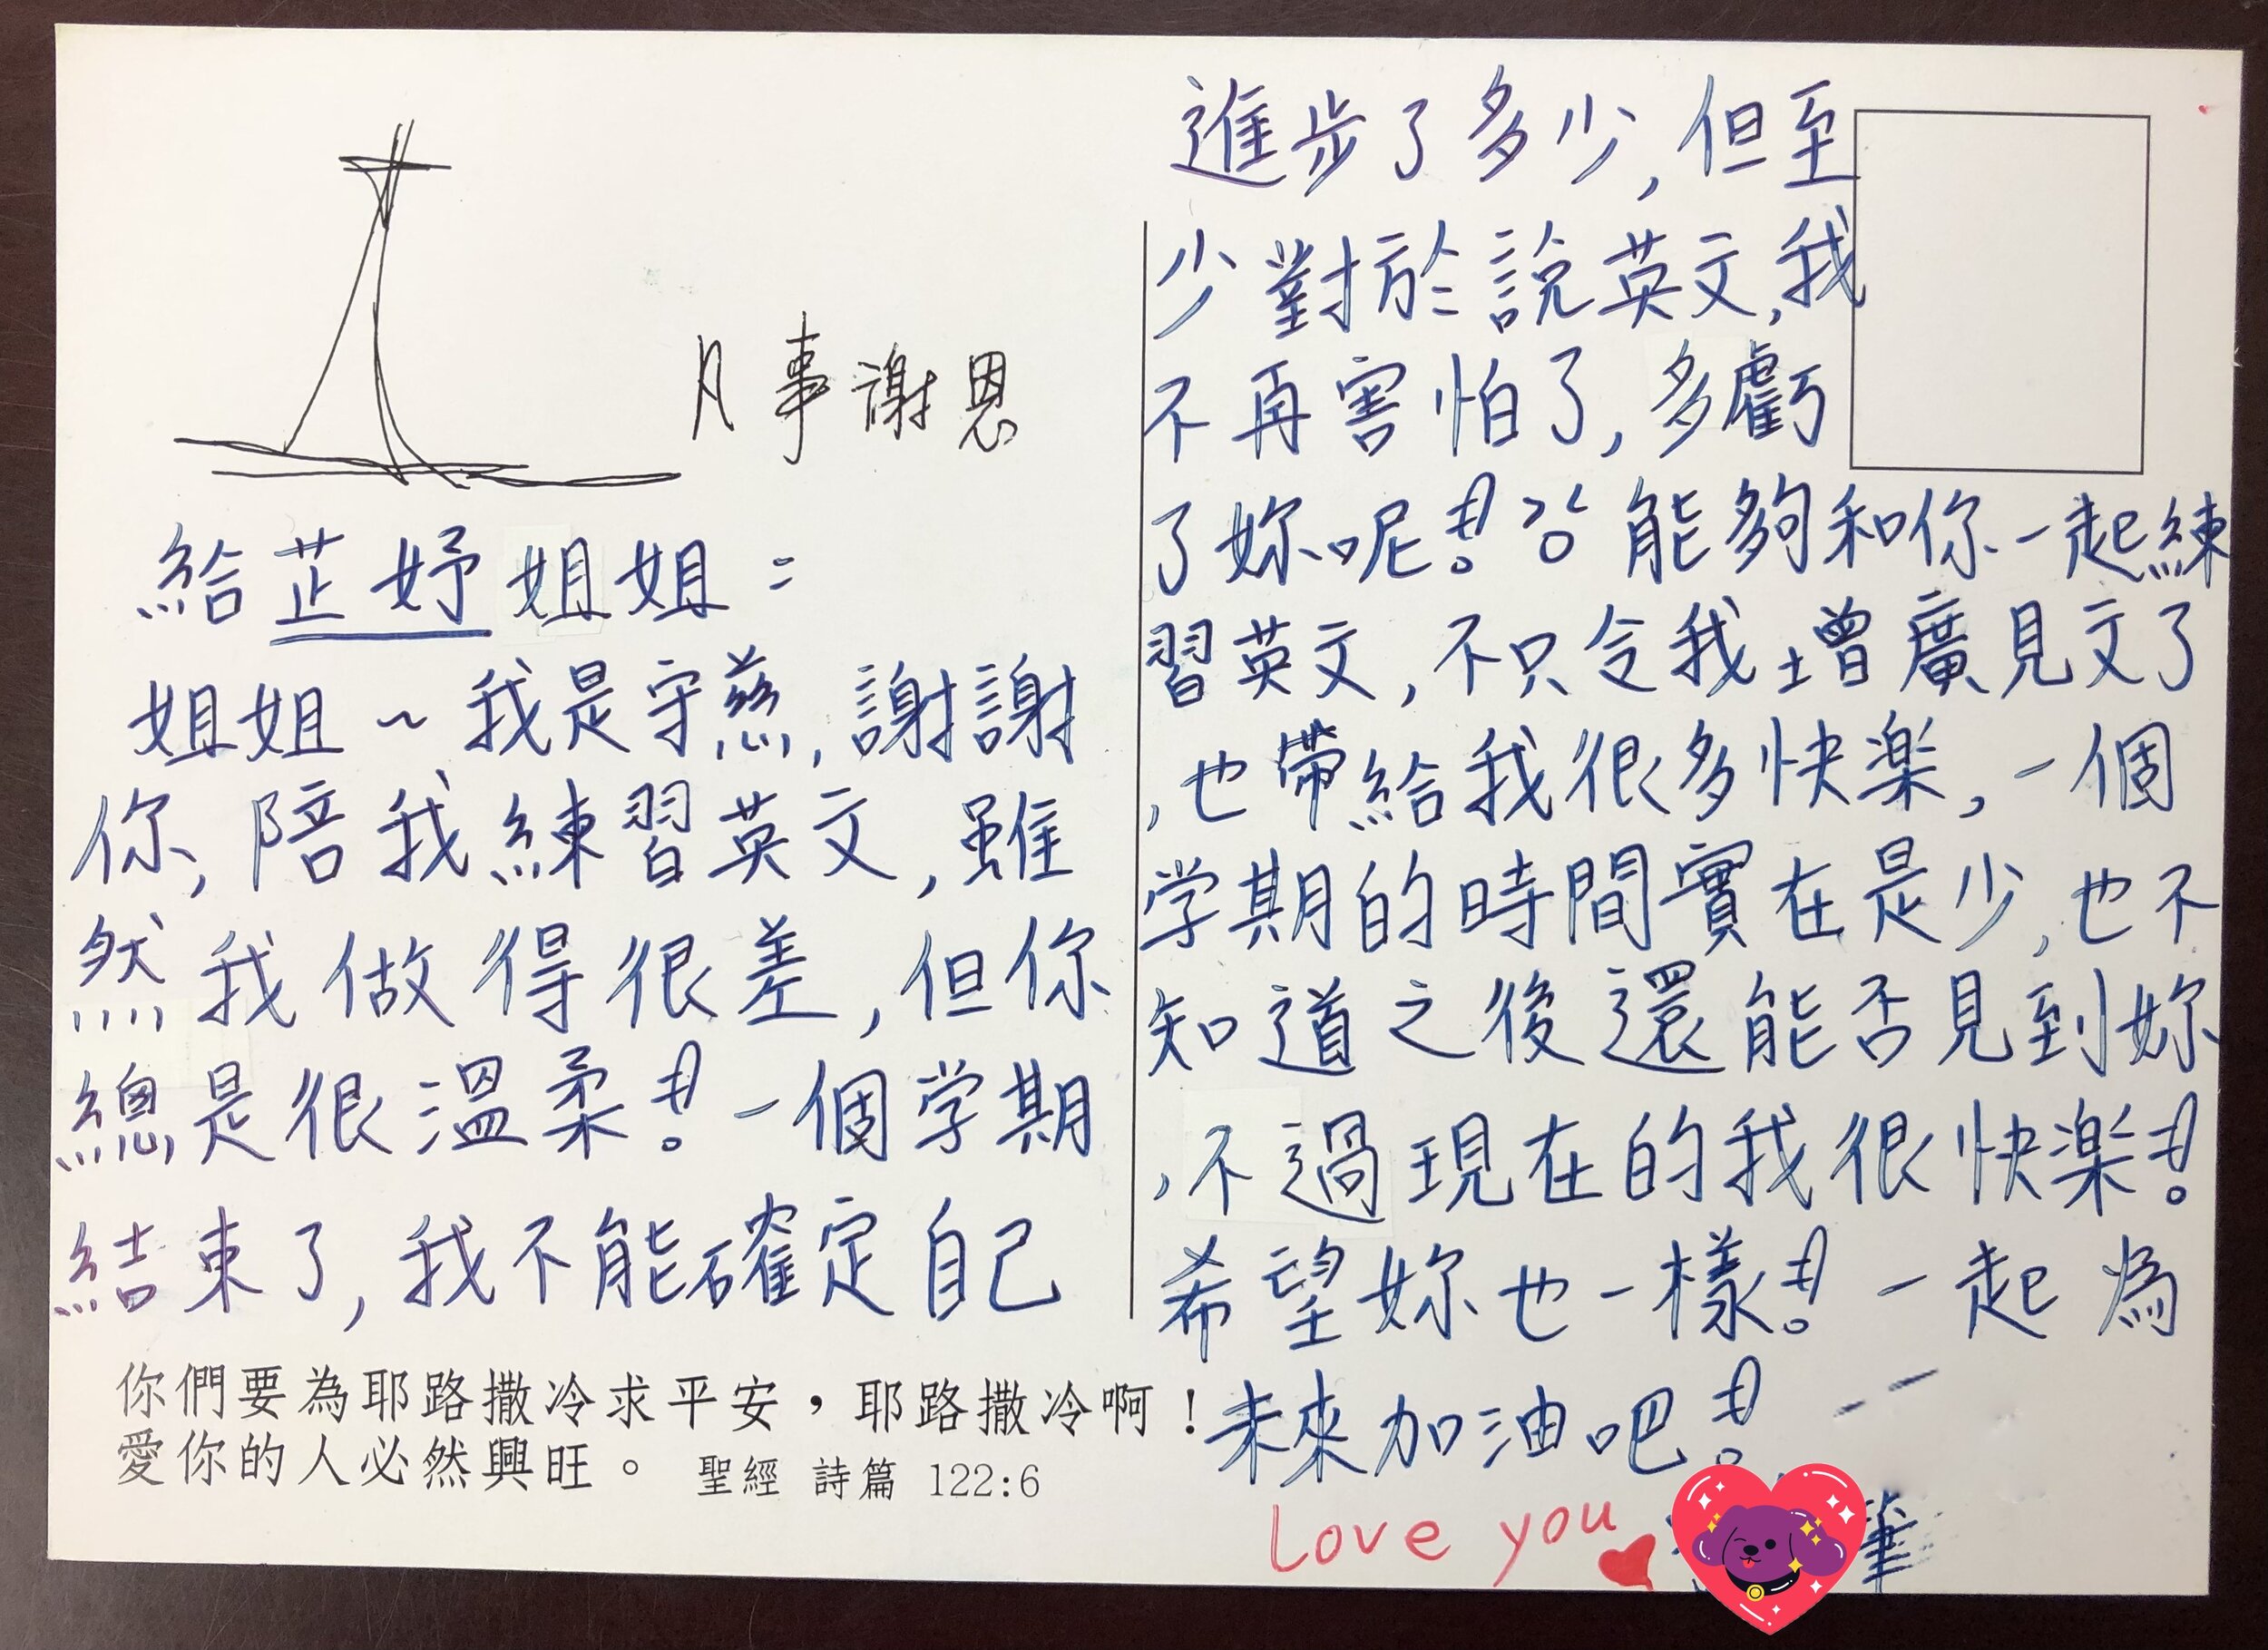 凡事謝恩
給芷妤姐姐:
姐姐~我是守慈,謝謝
你,陪我練習英文,雖
然我做得很差,但你
總是很溫柔!一個学期
結束了,我不能確定自己
你們要為耶路撒冷求平安,耶路撒冷啊!
愛你的人必然興旺。 聖經 詩篇 122:6
進步了多少,但至
少對於說英文,我
不再害怕了,多虧
了妳呢!能夠和你一起練
習英文,不只令我增廣見文了
,也帶給我很多快楽,一個
学期的時間實在是少,也不
知道之後還能否見到妳
,不過現在的我很快楽!
希望妳也一樣!一起為
未來加油吧!
Love you
筆